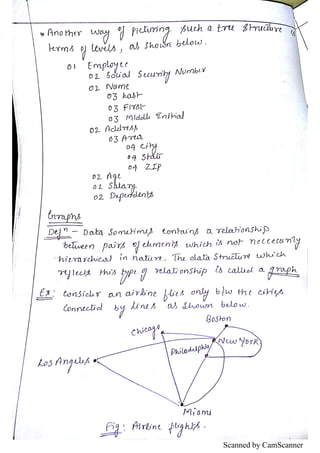 * Another way of picturing such a tree structure is
terms of levels, as shown below.
01 Employee
02 Social Security Number
02 Name
03 Last
03 First
03 Middle Initial
02 Address
03 Area
04 City
04 State
04 ZIP
02 Age
02 Salary
02 Dependents
Graphs
Defⁿ - Data Sometimes contains a relationship
between pairs of elements which is not necessarily
hierarchical in nature. The data structure which
reflects this type of relationship is called a graph
Ex: Consider an airline flies only b/w the cities
Connected by lines as shown below.
Boston
Chicago
New York
Philadelphia
Los Angeles
Miami
Fig: Airline flights.
Scanned by CamScanner